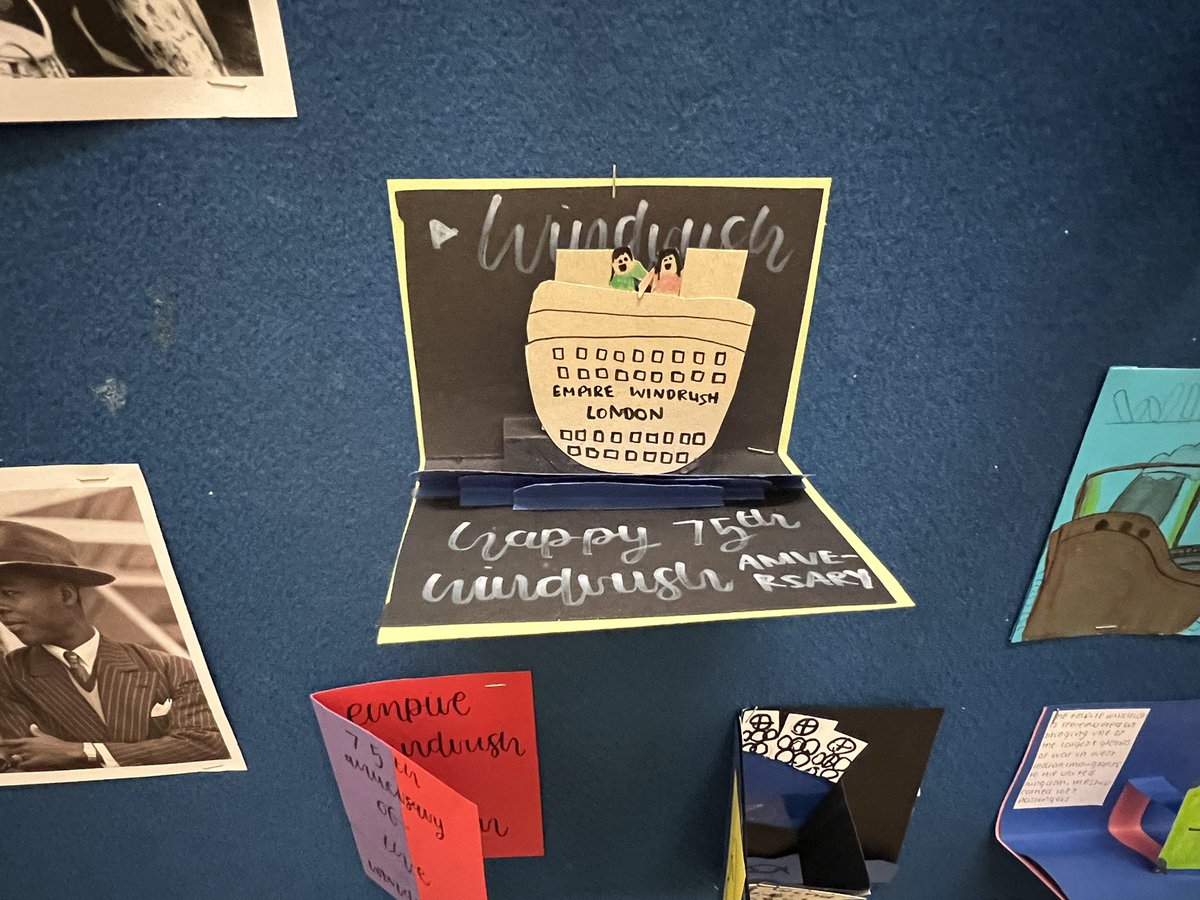 Windrush
EMPIRE WINDRUSH
LONDON
happy 75th
windrush ANIVE-
RSARY
empire
windrush
75th
anniversary
OF
the empire windrush
is remembered as
bringing one of
the largest groups
of war in west
indian immigrants
to the united
kingdom. the ship
carried 1027
passengers